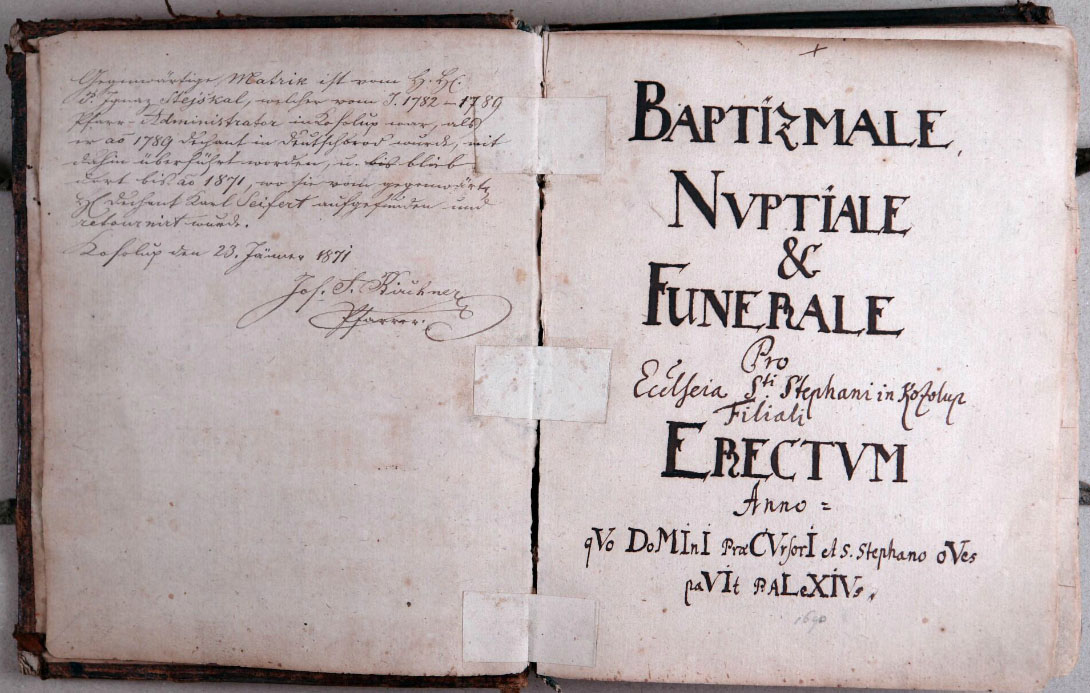 Gegenwärtige Matrik ist vom H. H.
P. Ignaz Stejskal, welcher vom J. 1782 – 1789
Pfarr-Administrator in Kosolup war, als
er ao 1789 Dechant in Deutschbrod wurde, mit
dahin überführt worden, u. bis blieb
dort bis ao 1871, wo sie vom gegenwärt.
H Dechant Karl Seifert aufgefunden und
retournirt wurde.
Kosolup den 23. Jänner 1871
Jos. S. Kirchner
Pfarrer.
+
BAPTIZMALE,
NVPTIALE
&
FUNERALE
Pro
Ecclseia Sti Stephani in Kozolup
Filiali
ERECTVM
Anno =
qVo DoMInI PræCVrsorI et S. Stephano oVes
paVIt P. ALeXIVs.
1690